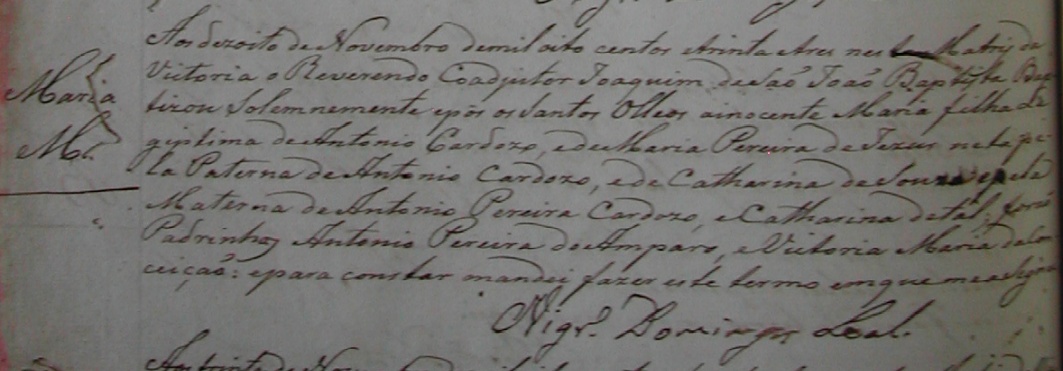 Aos dezoito de Novembro de mil oito centos e trinta e tres nesta Matris da
Victoria o Reverendo Coadjutor Joaquim de São João Baptista Bap
Maria
tizou Solemnemente e pôs os Santos Olleos a inocente Maria filha Le
M.
giptima de Antonio Cardozo, e de Maria Pereira de Jezus neta pe
la Paterna de Antonio Cardozo, e de Catharina de Souza e pela
Materna de Antonio Pereira Cardozo, e Catharina de tal; forão
Padrinhos Antonio Pereira do Amparo, e Victoria Maria da Con
ceição: e para constar mandei fazer este termo em que me assigno
Vigr.º Domingos Leal.